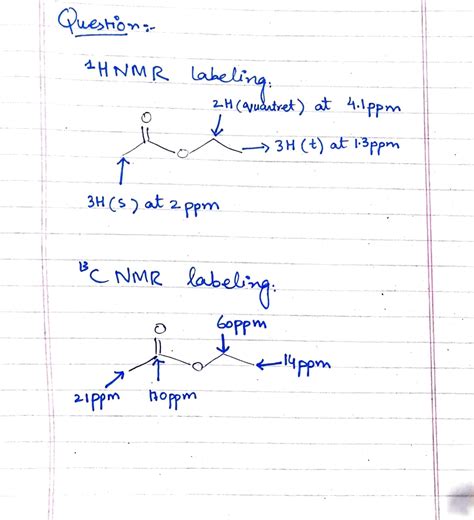 Question:-
¹H NMR labeling:
2H (quartret) at 4.1ppm
O
O
3H (t) at 1.3ppm
3H (s) at 2 ppm
¹³C NMR labeling:
60ppm
O
O
14ppm
21ppm 170ppm